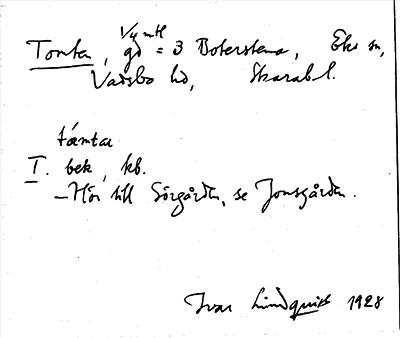 Tomten, 1/4 mtl gd = 3 Boterstena, Eks sn,
Vadsbo hd, Skarab l.
tåmta
I. bek, kb.
— Hör till Sörgården, se Jonsgården.
Ivar Lindquist 1928